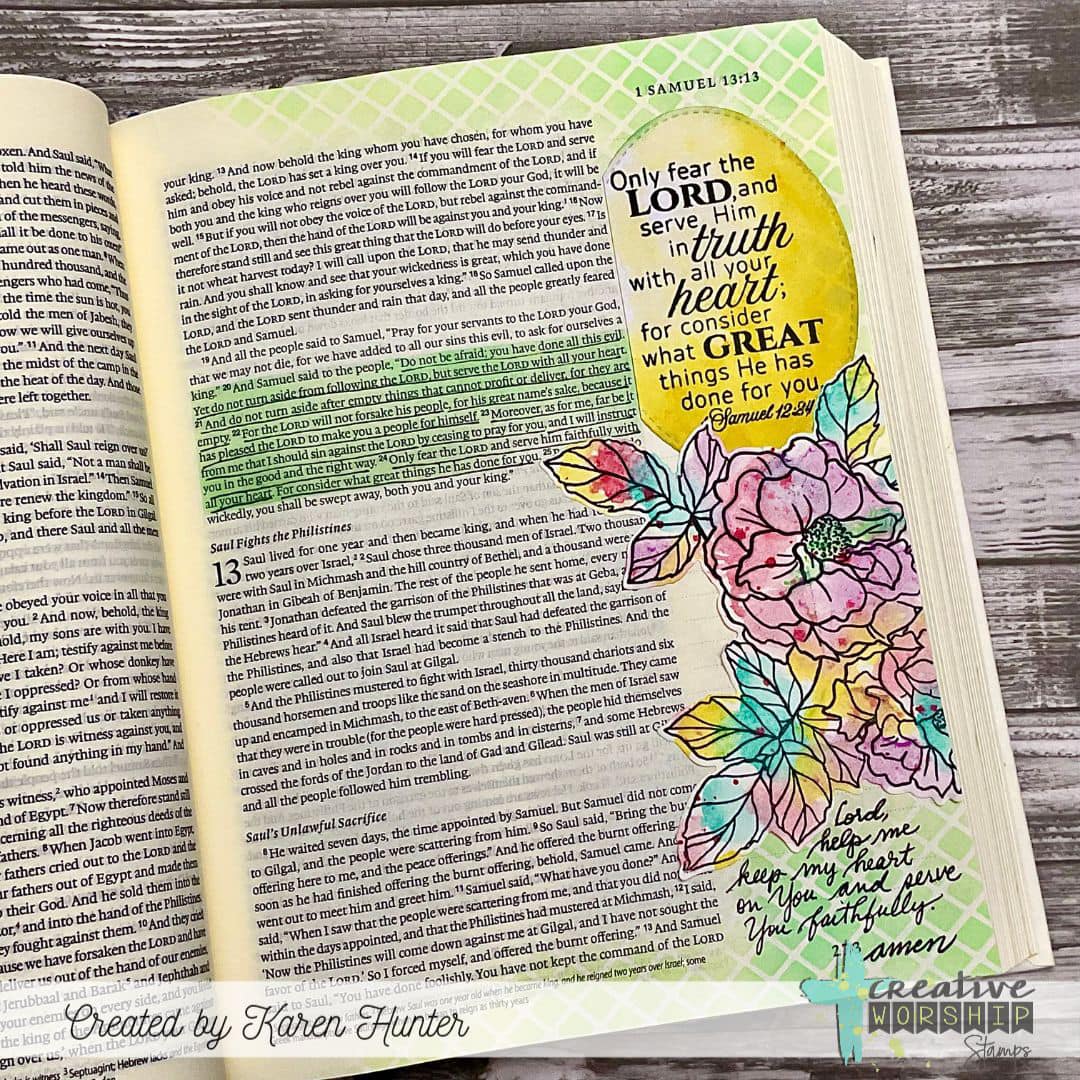 oxen. And Saul said, "What
told him the news of the
hen he heard these words,
and cut them in pieces and
of the messengers, saying,
all it be done to his oxen!"
ame out as one man. 8 When
hundred thousand, and the
engers who had come, "Thus
the time the sun is hot, you
told the men of Jabesh, they
ow we will give ourselves up
you." 11 And the next day Saul
the midst of the camp in the
the heat of the day. And those
ere left together.
said, 'Shall Saul reign over us?'
t Saul said, "Not a man shall be
lvation in Israel." 14 Then Samuel
re renew the kingdom." 15 So all
king before the LORD in Gilgal.
o, and there Saul and all the men
e obeyed your voice in all that you
you. 2 And now, behold, the king
hold, my sons are with you. I have
Here I am; testify against me before
I taken? Or whose donkey have
I oppressed? Or from whose hand
tify against me 1 and I will restore it
or oppressed us or taken anything
he LORD is witness against you, and
ot found anything in my hand." And
s witness," 2 who appointed Moses and
nd of Egypt. 7 Now therefore stand still
cerning all the righteous deeds of the
athers. 8 When Jacob went into Egypt,
r fathers cried out to the LORD and the
ur fathers out of Egypt and made them
their God. And he sold them into the
or, 4 and into the hand of the Philistines,
ey fought against them. 10 And they cried
ause we have forsaken the LORD and have
deliver us out of the hand of our enemies,
Jerubbaal and Barak 5 and Jephthah and
your enemies on every side, and you lived
the king of
gn over us,' when the LORD your
is witness 3 Septuagint; Hebrew lacks
1 SAMUEL 13:13
your king. 13 And now behold the king whom you have chosen, for whom you have
asked; behold, the LORD has set a king over you. 14 If you will fear the LORD and serve
him and obey his voice and not rebel against the commandment of the LORD, and if
both you and the king who reigns over you will follow the LORD your God, it will be
well. 15 But if you will not obey the voice of the LORD, but rebel against the command-
ment of the LORD, then the hand of the LORD will be against you and your king. 1 16 Now
therefore stand still and see this great thing that the LORD will do before your eyes. 17 Is
it not wheat harvest today? I will call upon the LORD, that he may send thunder and
rain. And you shall know and see that your wickedness is great, which you have done
in the sight of the LORD, in asking for yourselves a king." 18 So Samuel called upon the
LORD, and the LORD sent thunder and rain that day, and all the people greatly feared
the LORD and Samuel.
19 And all the people said to Samuel, "Pray for your servants to the LORD your God,
that we may not die, for we have added to all our sins this evil, to ask for ourselves a
king." 20 And Samuel said to the people, "Do not be afraid; you have done all this evil.
Yet do not turn aside from following the LORD, but serve the LORD with all your heart.
21 And do not turn aside after empty things that cannot profit or deliver, for they are
empty. 22 For the LORD will not forsake his people, for his great name's sake, because it
has pleased the LORD to make you a people for himself. 23 Moreover, as for me, far be it
from me that I should sin against the LORD by ceasing to pray for you, and I will instruct
you in the good and the right way. 24 Only fear the LORD and serve him faithfully with
all your heart. For consider what great things he has done for you. 25
wickedly, you shall be swept away, both you and your king."
Saul Fights the Philistines
13 Saul lived for one year and then became king, and when he had
two years over Israel, 2 2 Saul chose three thousand men of Israel. Two thousan
were with Saul in Michmash and the hill country of Bethel, and a thousand were
Jonathan in Gibeah of Benjamin. The rest of the people he sent home, every
his tent. 3 Jonathan defeated the garrison of the Philistines that was at Geba,
Philistines heard of it. And Saul blew the trumpet throughout all the land, sayi
the Hebrews hear." 4 And all Israel heard it said that Saul had defeated the garrison of
the Philistines, and also that Israel had become a stench to the Philistines. And the
people were called out to join Saul at Gilgal.
5 And the Philistines mustered to fight with Israel, thirty thousand chariots and six
thousand horsemen and troops like the sand on the seashore in multitude. They came
up and encamped in Michmash, to the east of Beth-aven. 6 When the men of Israel saw
that they were in trouble (for the people were hard pressed), the people hid themselves
in caves and in holes and in rocks and in tombs and in cisterns, 7 and some Hebrews
crossed the fords of the Jordan to the land of Gad and Gilead. Saul was still at
and all the people followed him trembling.
Saul's Unlawful Sacrifice
8 He waited seven days, the time appointed by Samuel. But Samuel did not com
to Gilgal, and the people were scattering from him. 9 So Saul said, "Bring the bu
offering here to me, and the peace offerings." And he offered the burnt offering.
soon as he had finished offering the burnt offering, behold, Samuel came. And
went out to meet him and greet him. 11 Samuel said, "What have you done?" And
said, "When I saw that the people were scattering from me, and that you did not
within the days appointed, and that the Philistines had mustered at Michmash, 12 I said,
'Now the Philistines will come down against me at Gilgal, and I have not sought the
favor of the LORD.' So I forced myself, and offered the burnt offering." 13 And Samuel
said to Saul, "You have done foolishly. You have not kept the command of the LORD
Saul was one year old when he became king, and he reigned two years over Israel; some
to reign as thirty years
Only fear the
LORD, and
serve Him
in truth
with all your
heart;
for consider
what GREAT
things He has
done for you
Samuel 12:24
Lord,
help me
keep my heart
on You and serve
You faithfully.
amen
Created by Karen Hunter
creative
WORSHIP
Stamps